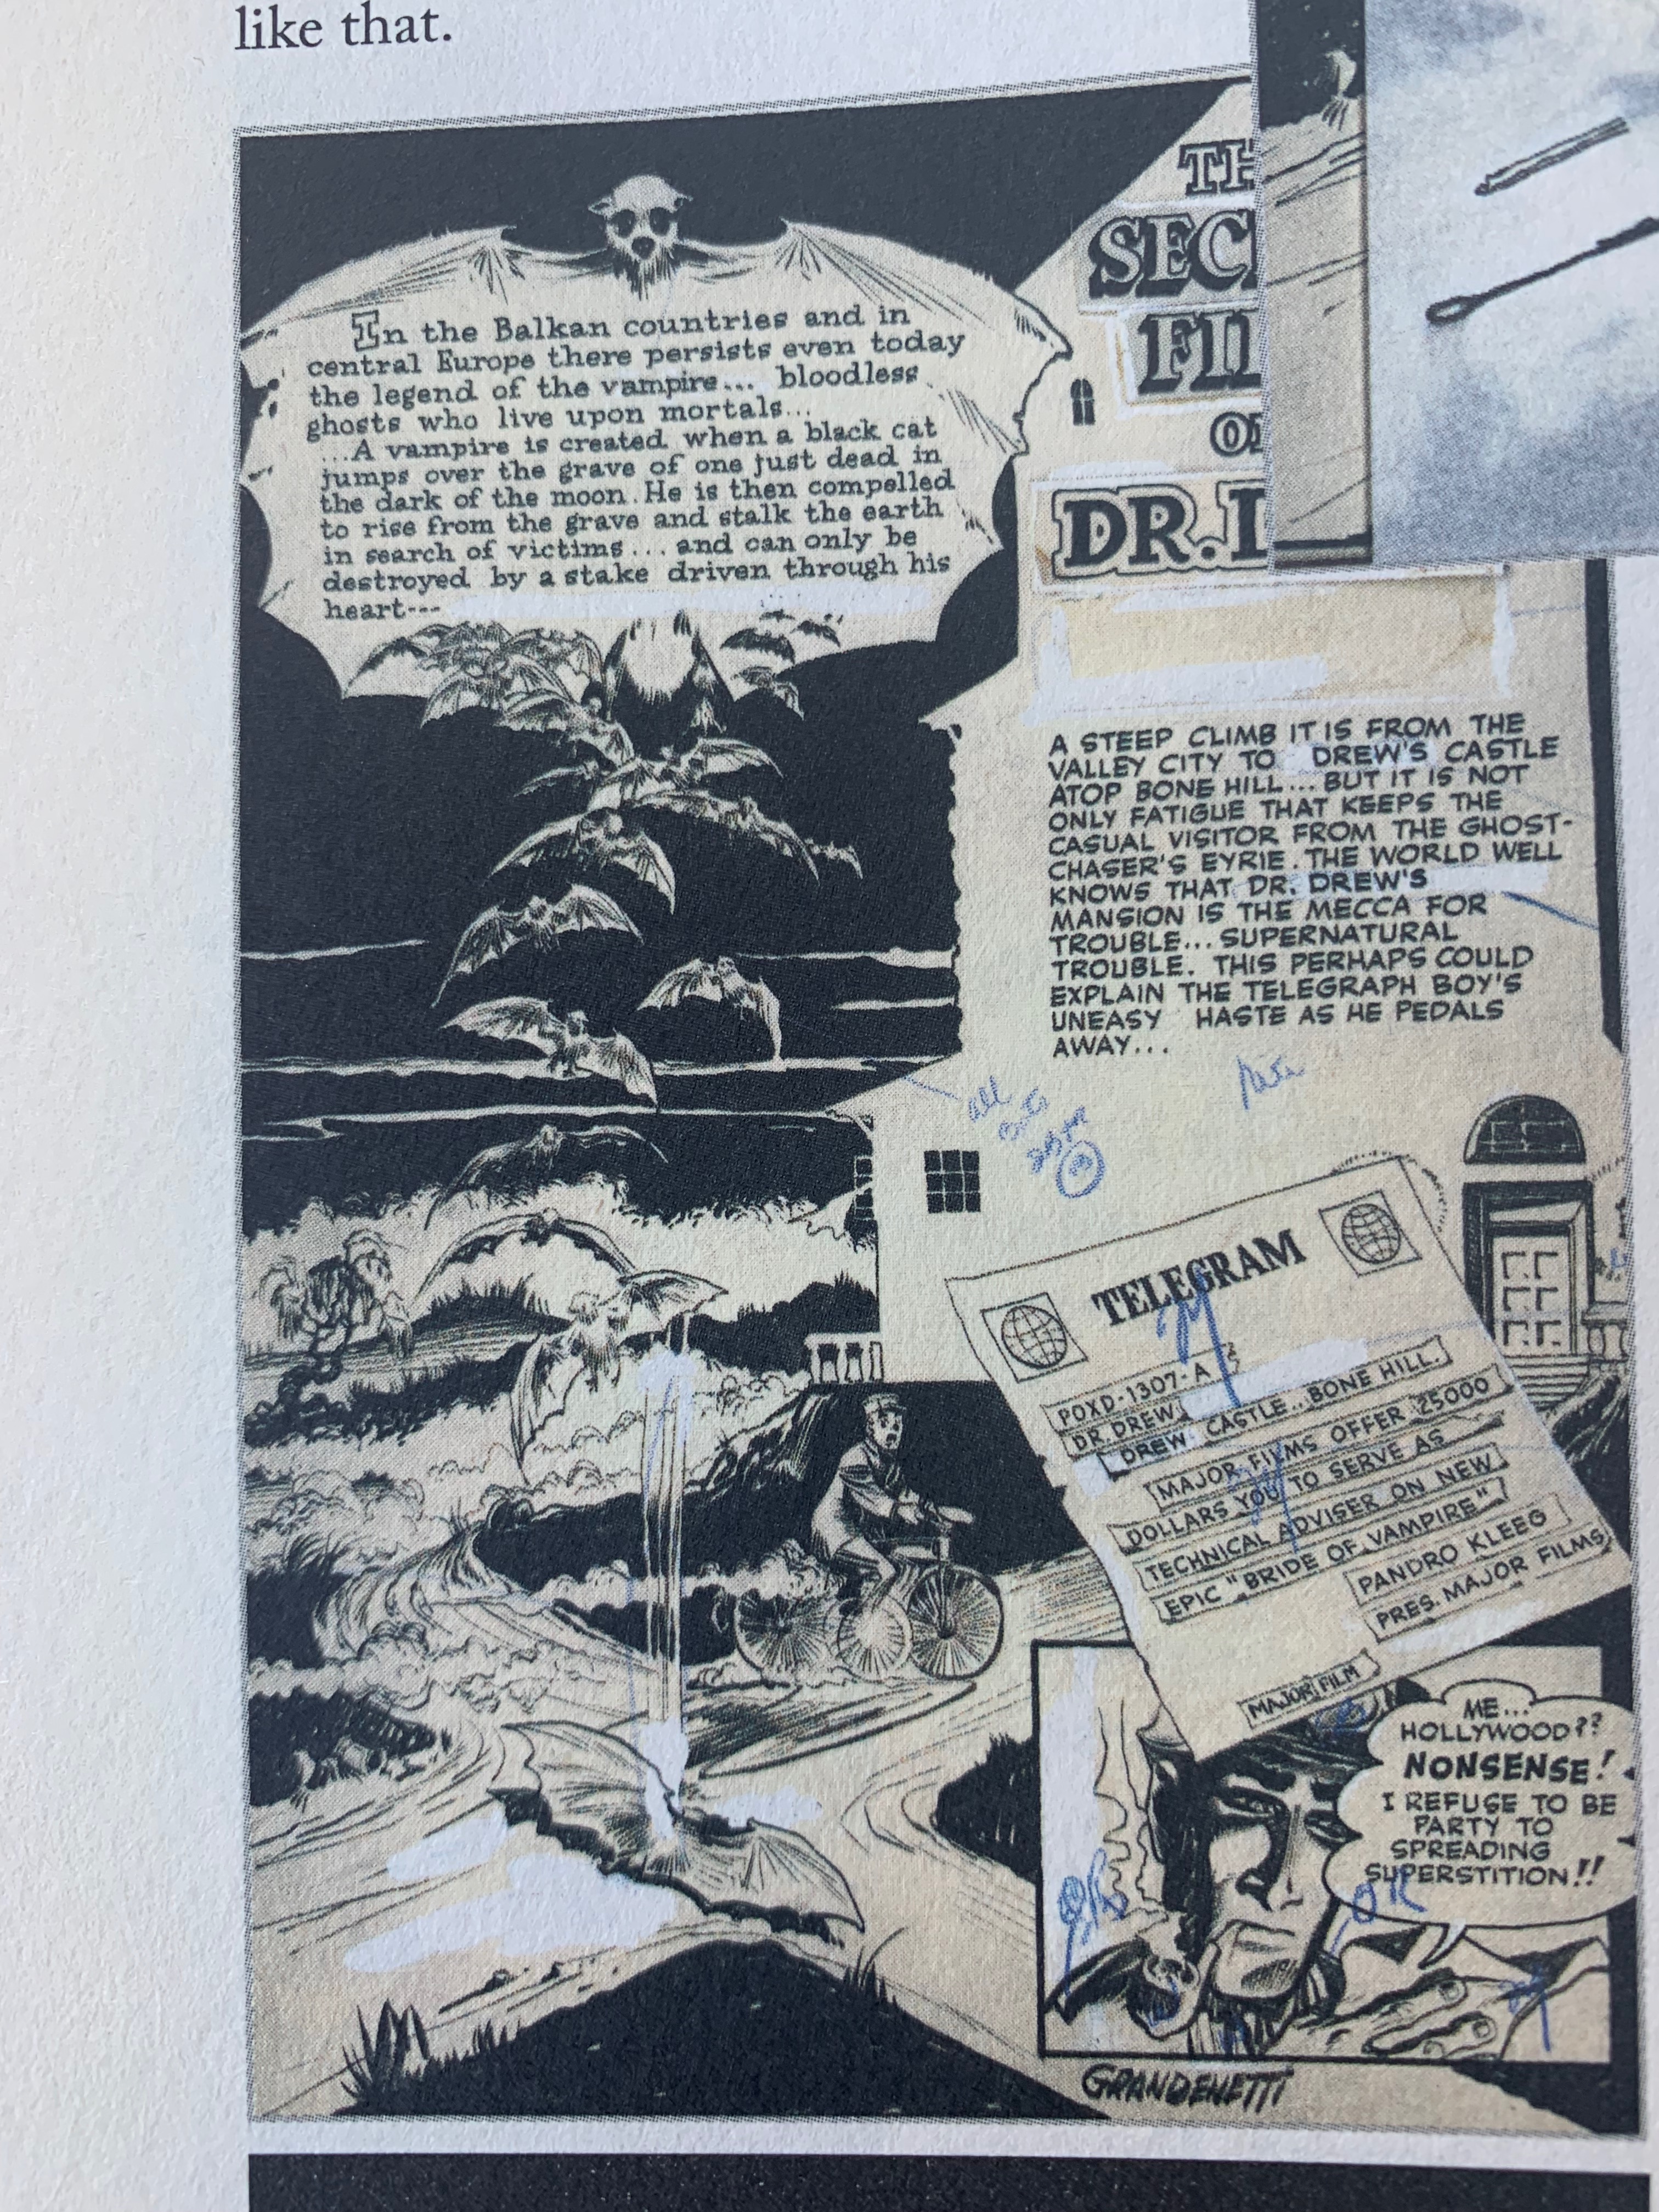 like that.
In the Balkan countries and in
central Europe there persists even today
the legend of the vampire... bloodless
ghosts who live upon mortals...
...A vampire is created when a black cat
jumps over the grave of one just dead in
the dark of the moon. He is then compelled
to rise from the grave and stalk the earth
in search of victims... and can only be
destroyed by a stake driven through his
heart---
TH
SEC
FIL
OF
DR. D
A STEEP CLIMB IT IS FROM THE
VALLEY CITY TO DREW'S CASTLE
ATOP BONE HILL... BUT IT IS NOT
ONLY FATIGUE THAT KEEPS THE
CASUAL VISITOR FROM THE GHOST-
CHASER'S EYRIE. THE WORLD WELL
KNOWS THAT DR. DREW'S
MANSION IS THE MECCA FOR
TROUBLE... SUPERNATURAL
TROUBLE. THIS PERHAPS COULD
EXPLAIN THE TELEGRAPH BOY'S
UNEASY HASTE AS HE PEDALS
AWAY...
TELEGRAM
POXD-1307-A
DR. DREW
DREW CASTLE.. BONE HILL.
MAJOR FILMS OFFER 25000
DOLLARS YOU TO SERVE AS
TECHNICAL ADVISER ON NEW
EPIC "BRIDE OF VAMPIRE"
PANDRO KLEEG
PRES. MAJOR FILMS
MAJOR FILM
ME...
HOLLYWOOD??
NONSENSE!
I REFUSE TO BE
PARTY TO
SPREADING
SUPERSTITION!!
GRANDENETTI